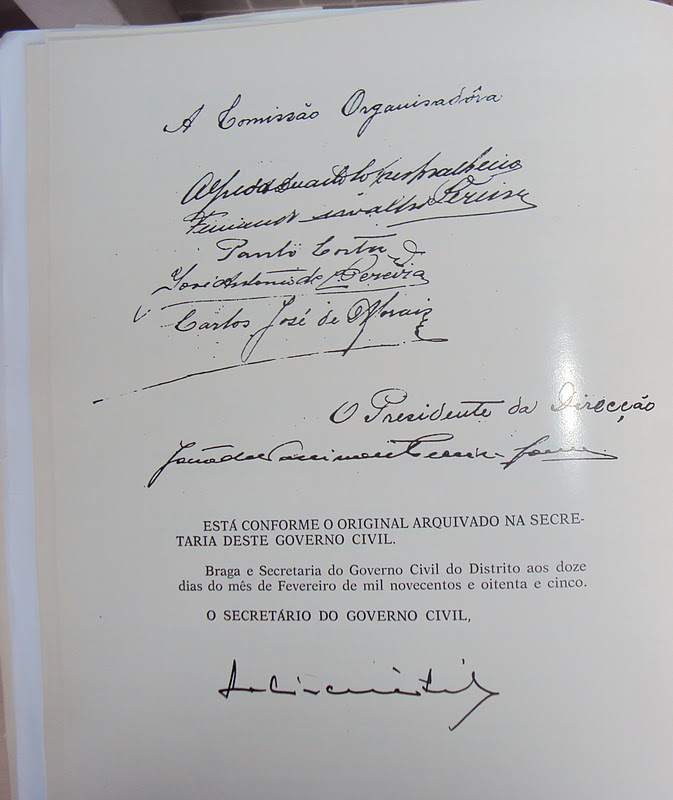 A Comissão Organisadôra
Pereira
Paulo Costa
José Antonio de Pereira
Carlos José de Morais
O Presidente da Direcção
ESTÁ CONFORME O ORIGINAL ARQUIVADO NA SECRE-
TARIA DESTE GOVERNO CIVIL.
Braga e Secretaria do Governo Civil do Distrito aos doze
dias do mês de Fevereiro de mil novecentos e oitenta e cinco.
O SECRETÁRIO DO GOVERNO CIVIL,